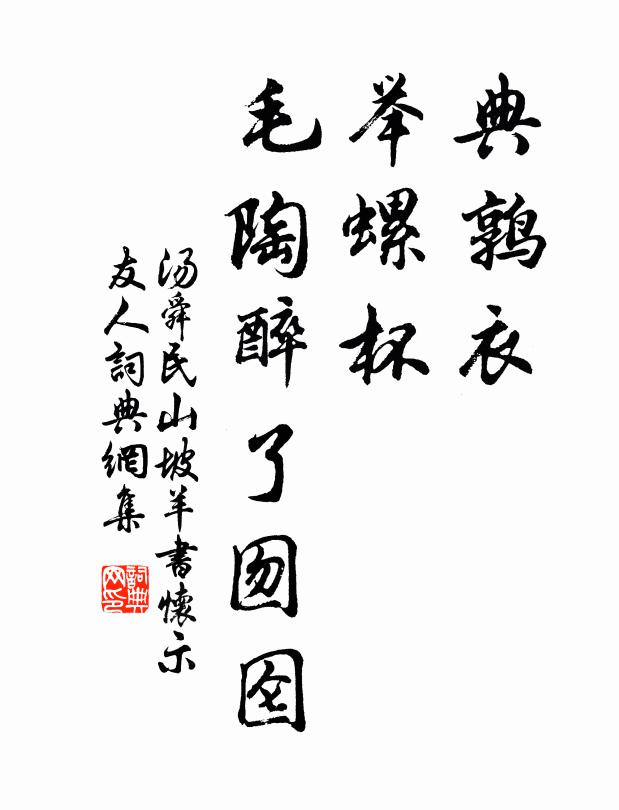 典鹑衣
举螺杯
毛陶醉了囫囵
汤舜民山坡羊書懷示
友人詞典網集
詞典
网印